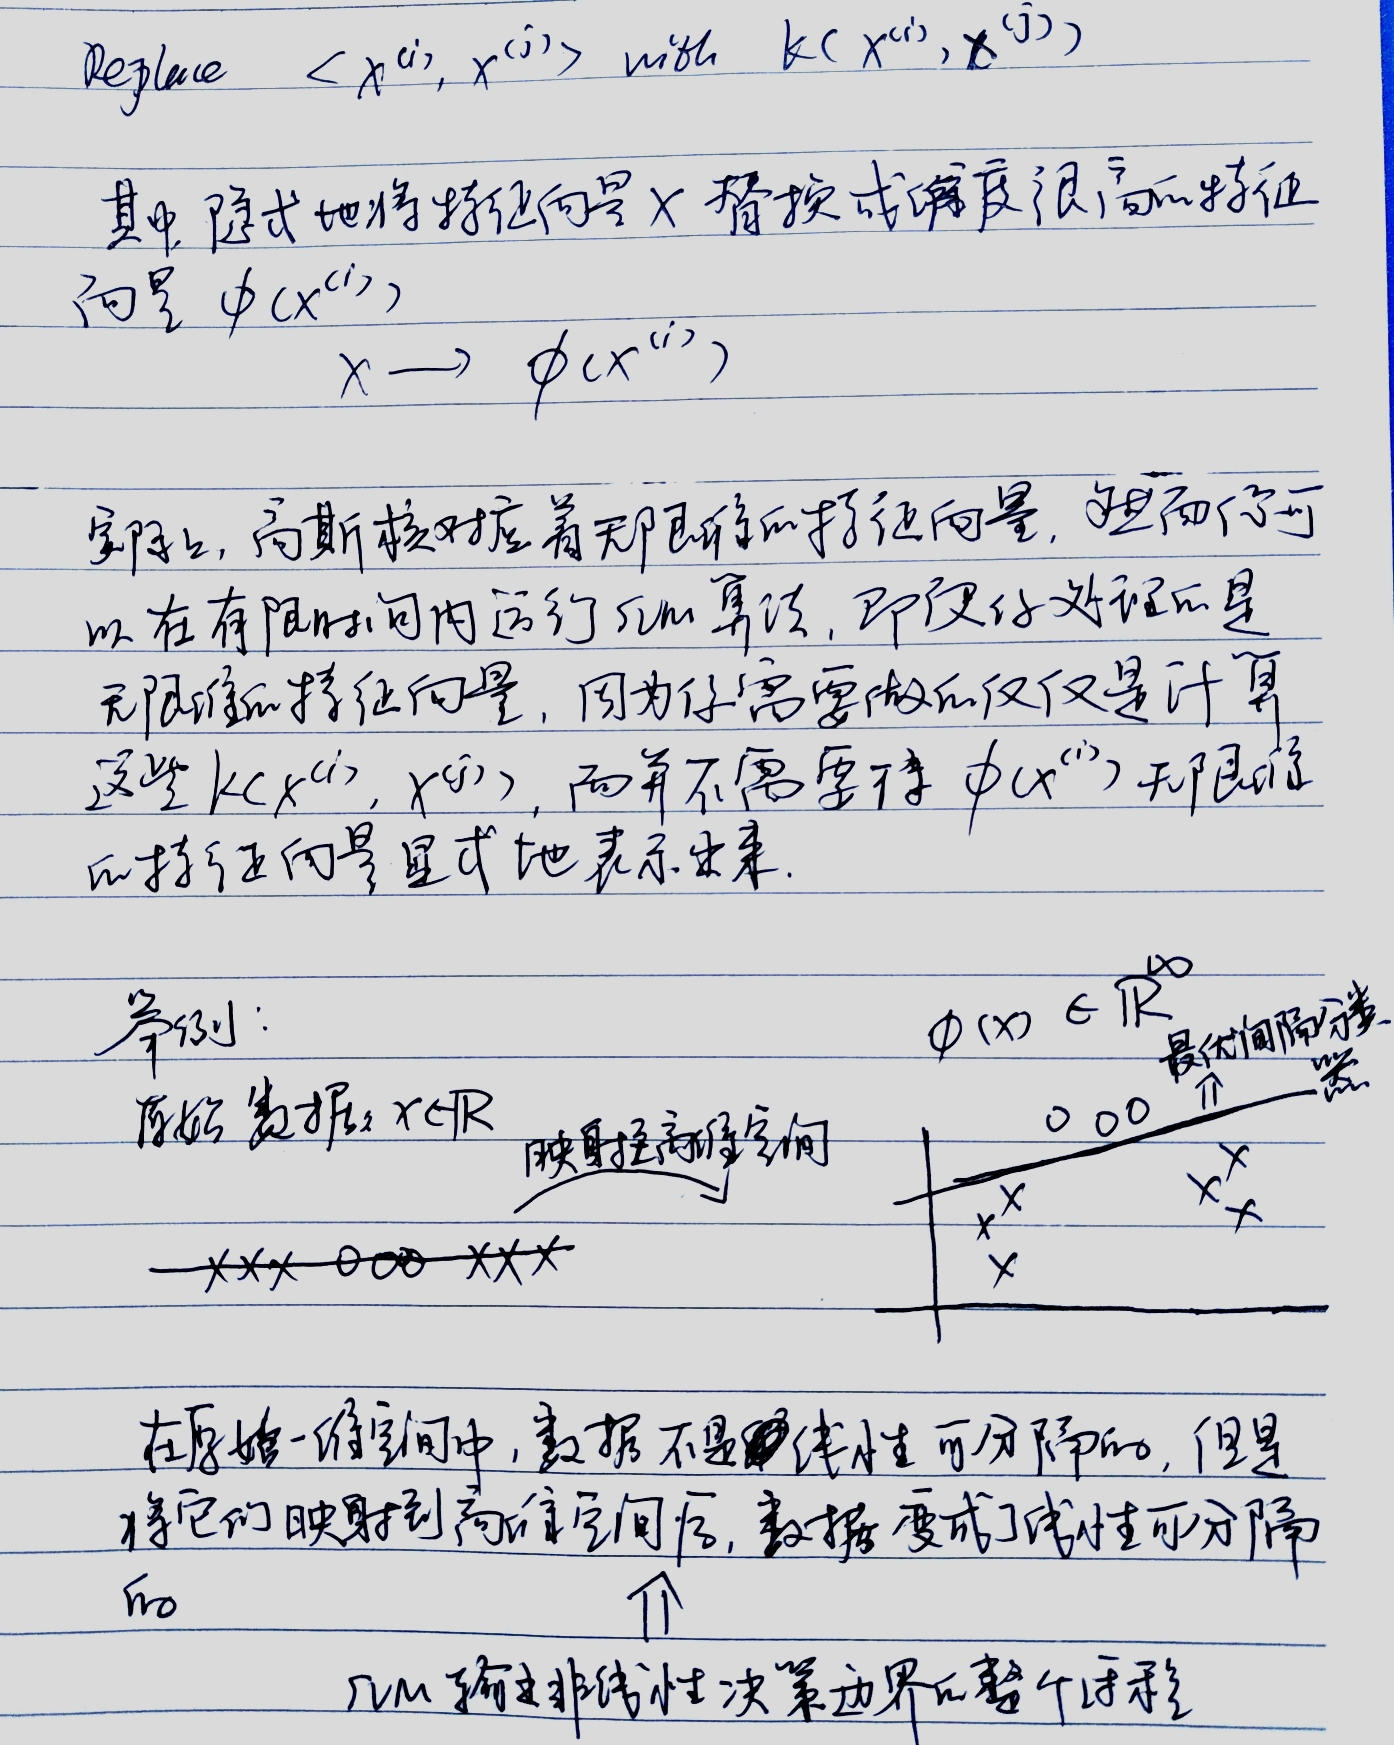 Replace < x^(i), x^(j) > with k( x^(i), x^(j) )
其中, 隐式地将特征向量 x 替换成维度很高的特征
向量 φ(x^(i))
x → φ(x^(i))
实际上, 高斯核对应着无限维的特征向量, 然而你可
以在有限时间内运行SVM算法, 即便你处理的是
无限维的特征向量, 因为你需要做的仅仅是计算
这些 k(x^(i), x^(j)), 而并不需要将 φ(x^(i)) 无限维
的特征向量显式地表示出来.
举例:
φ(x) ∈ ℝ^∞
最优间隔分类
器
⇑
原始数据: x∈ℝ
映射至高维空间
ooo
xxx
xxx
xxx ooo xxx
在原始一维空间中, 数据不是线性可分隔的, 但是
将它们映射到高维空间后, 数据变成了线性可分隔
的
⇑
SVM输出非线性决策边界的整个过程